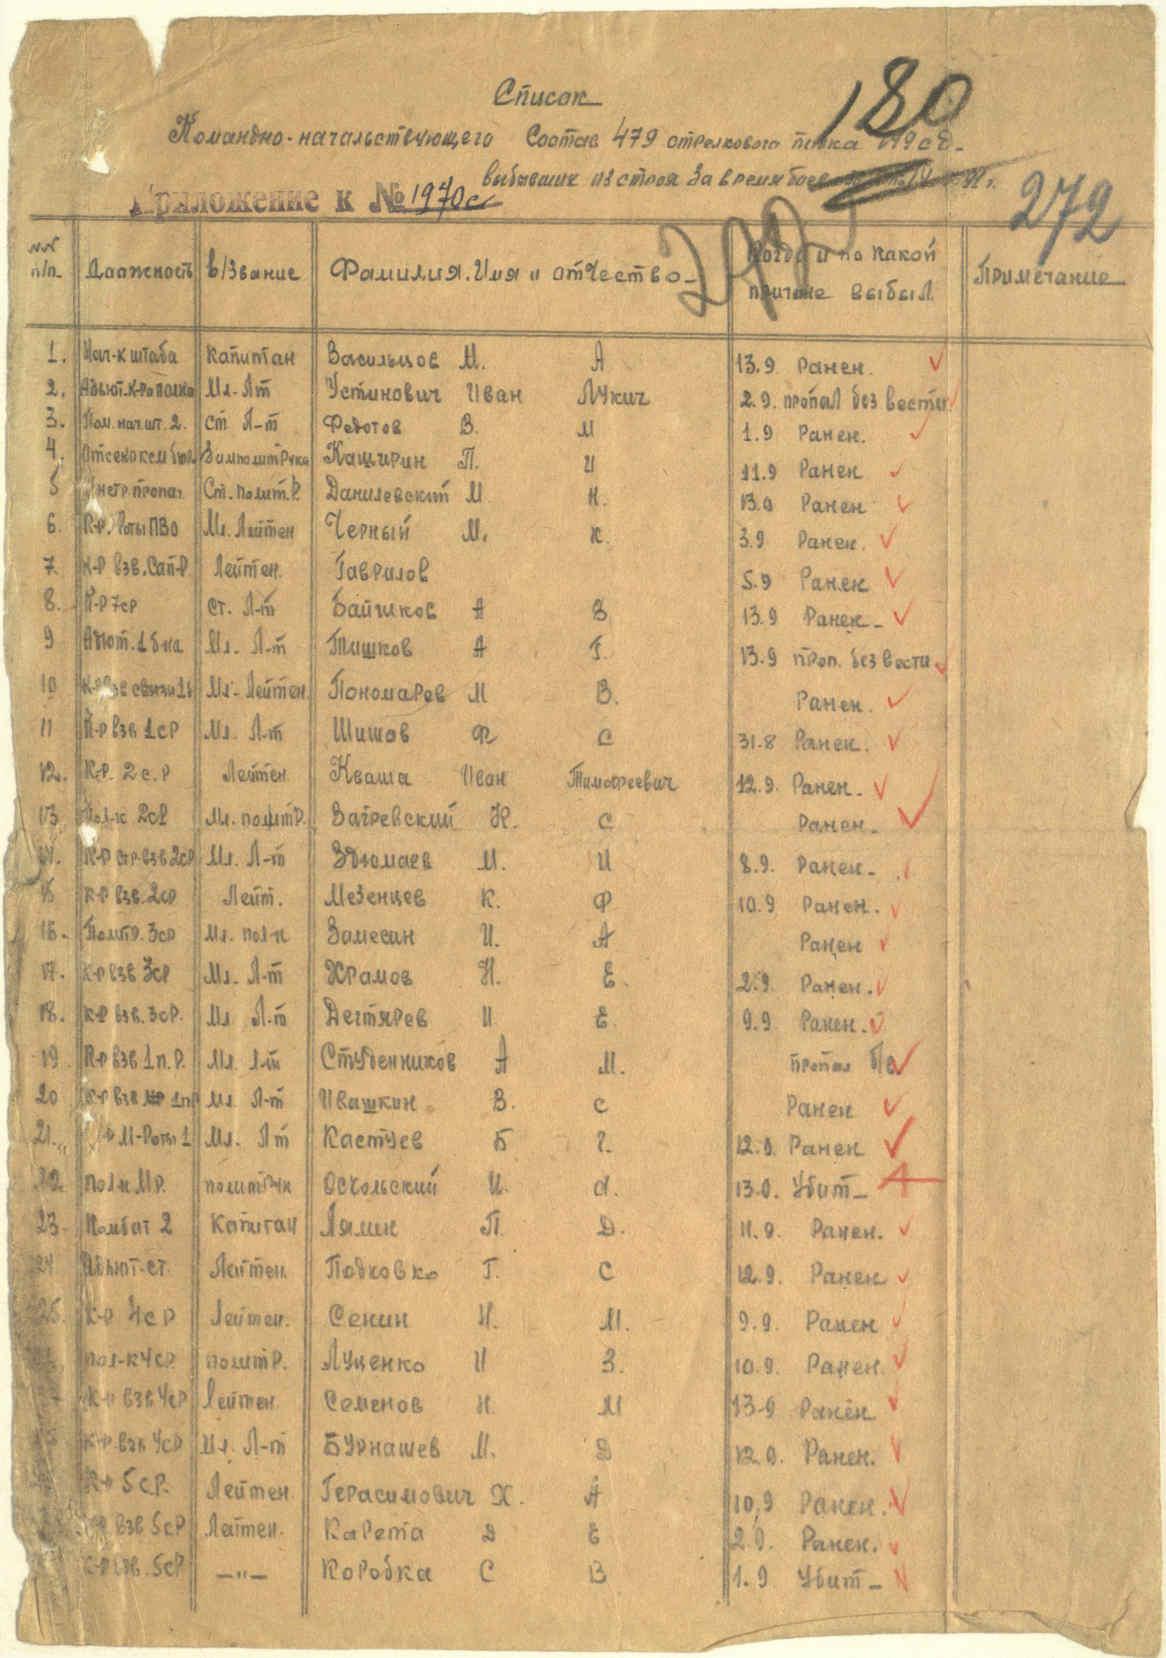 Список
Командно-начальствующего Состав 479 стрелкового полка 149 сд.
выбывших из строя за время боев
180
Приложение к № 1970с
272
№№ п/п. Должность в/звание Фамилия. Имя и отчество Когда и по какой причине выбыл Примечание
1. Нач-к штаба капитан Васильцов М. А 13.9 Ранен.
2. Адъют. К-ра полка Мл. Л-т Устинович Иван Лукич 2.9. пропал без вести
3. Пом. нач. шт. 2. ст Л-т Федотов В. М 1.9 Ранен.
4. Отсекр ком бюр Зам политрука Каширин П. И 11.9 Ранен
5 Инстр. пропаг. Ст. полит.Р. Данилевский М. Н. 13.9 Ранен
6. К-р. Роты ПВО Мл. Лейтен Черный М. К. 3.9 Ранен.
7. К-р взв. Сап-Р. Лейтен. Гаврилов 5.9 Ранен
8. К-р 7ср ст. Л-т Байшков А В 13.9 Ранен-
9 Адют. 1 б-на Мл. Л-т Тишков А Г. 13.9 проп. без вести
10 К-р взв связи 1б Мл. Лейтен. Пономарев М В. Ранен.
11 К-р взв 1ср Мл. Л-т Шишов Ф С 31.8 Ранен.
12. К-р. 2с.р Лейтен Кваша Иван Тимофеевич 12.9. Ранен.
13 Пол-к 2ср Мл. политР. Загревский Н. С Ранен.
14. К-р стр. взв 2ср Мл. Л-т Здюмаев М. И 8.9. Ранен-
15 К-р взв. 2ср Лейт. Мезенцев К. Ф 10.9 Ранен.
16. Политр. 3ср Мл. пол-к Замесан И. А Ранен
17. К-р взв 3ср Мл. Л-т Храмов Н. Е. 2.9. Ранен.
18. К-р взв. 3ср. Мл Л-т Дегтярев И Е. 9.9. Ранен.
19 К-р взв 1п.р. Мл. Л-т Студенников А М. пропал б/в
20 К-р взв 1пр Мл. Л-т Ивашкин В. С Ранен
21. М-Роты 1 Мл. Л-т Кастуев Б Г. 12.9. Ранен
22 пол-к Мр. политрук Оскольский И. А. 13.9. Убит-
23. Комбат 2 Капитан Лямин П. Д. 11.9. Ранен.
24 Адъют-ст. Лейтен. Подковко Г. С 12.9. Ранен
25. К-р 4ср Лейтен. Сенин Н. М. 9.9. Ранен
пол-к 4ср политР. Луценко И З. 10.9. Ранен.
К-р взв 4ср Лейтен. Семенов Н. М 13.9 Ранен
К-р взв 4ср Мл. Л-т Бурнашев М. Д 12.9. Ранен.
К-р 5ср. Лейтен. Герасимович Х. А 10.9 Ранен.
К-р взв 5ср Лейтен. Карета Д Е 2.9. Ранен.
К-р взв. 5ср -"- Коробка С В 1.9 Убит-